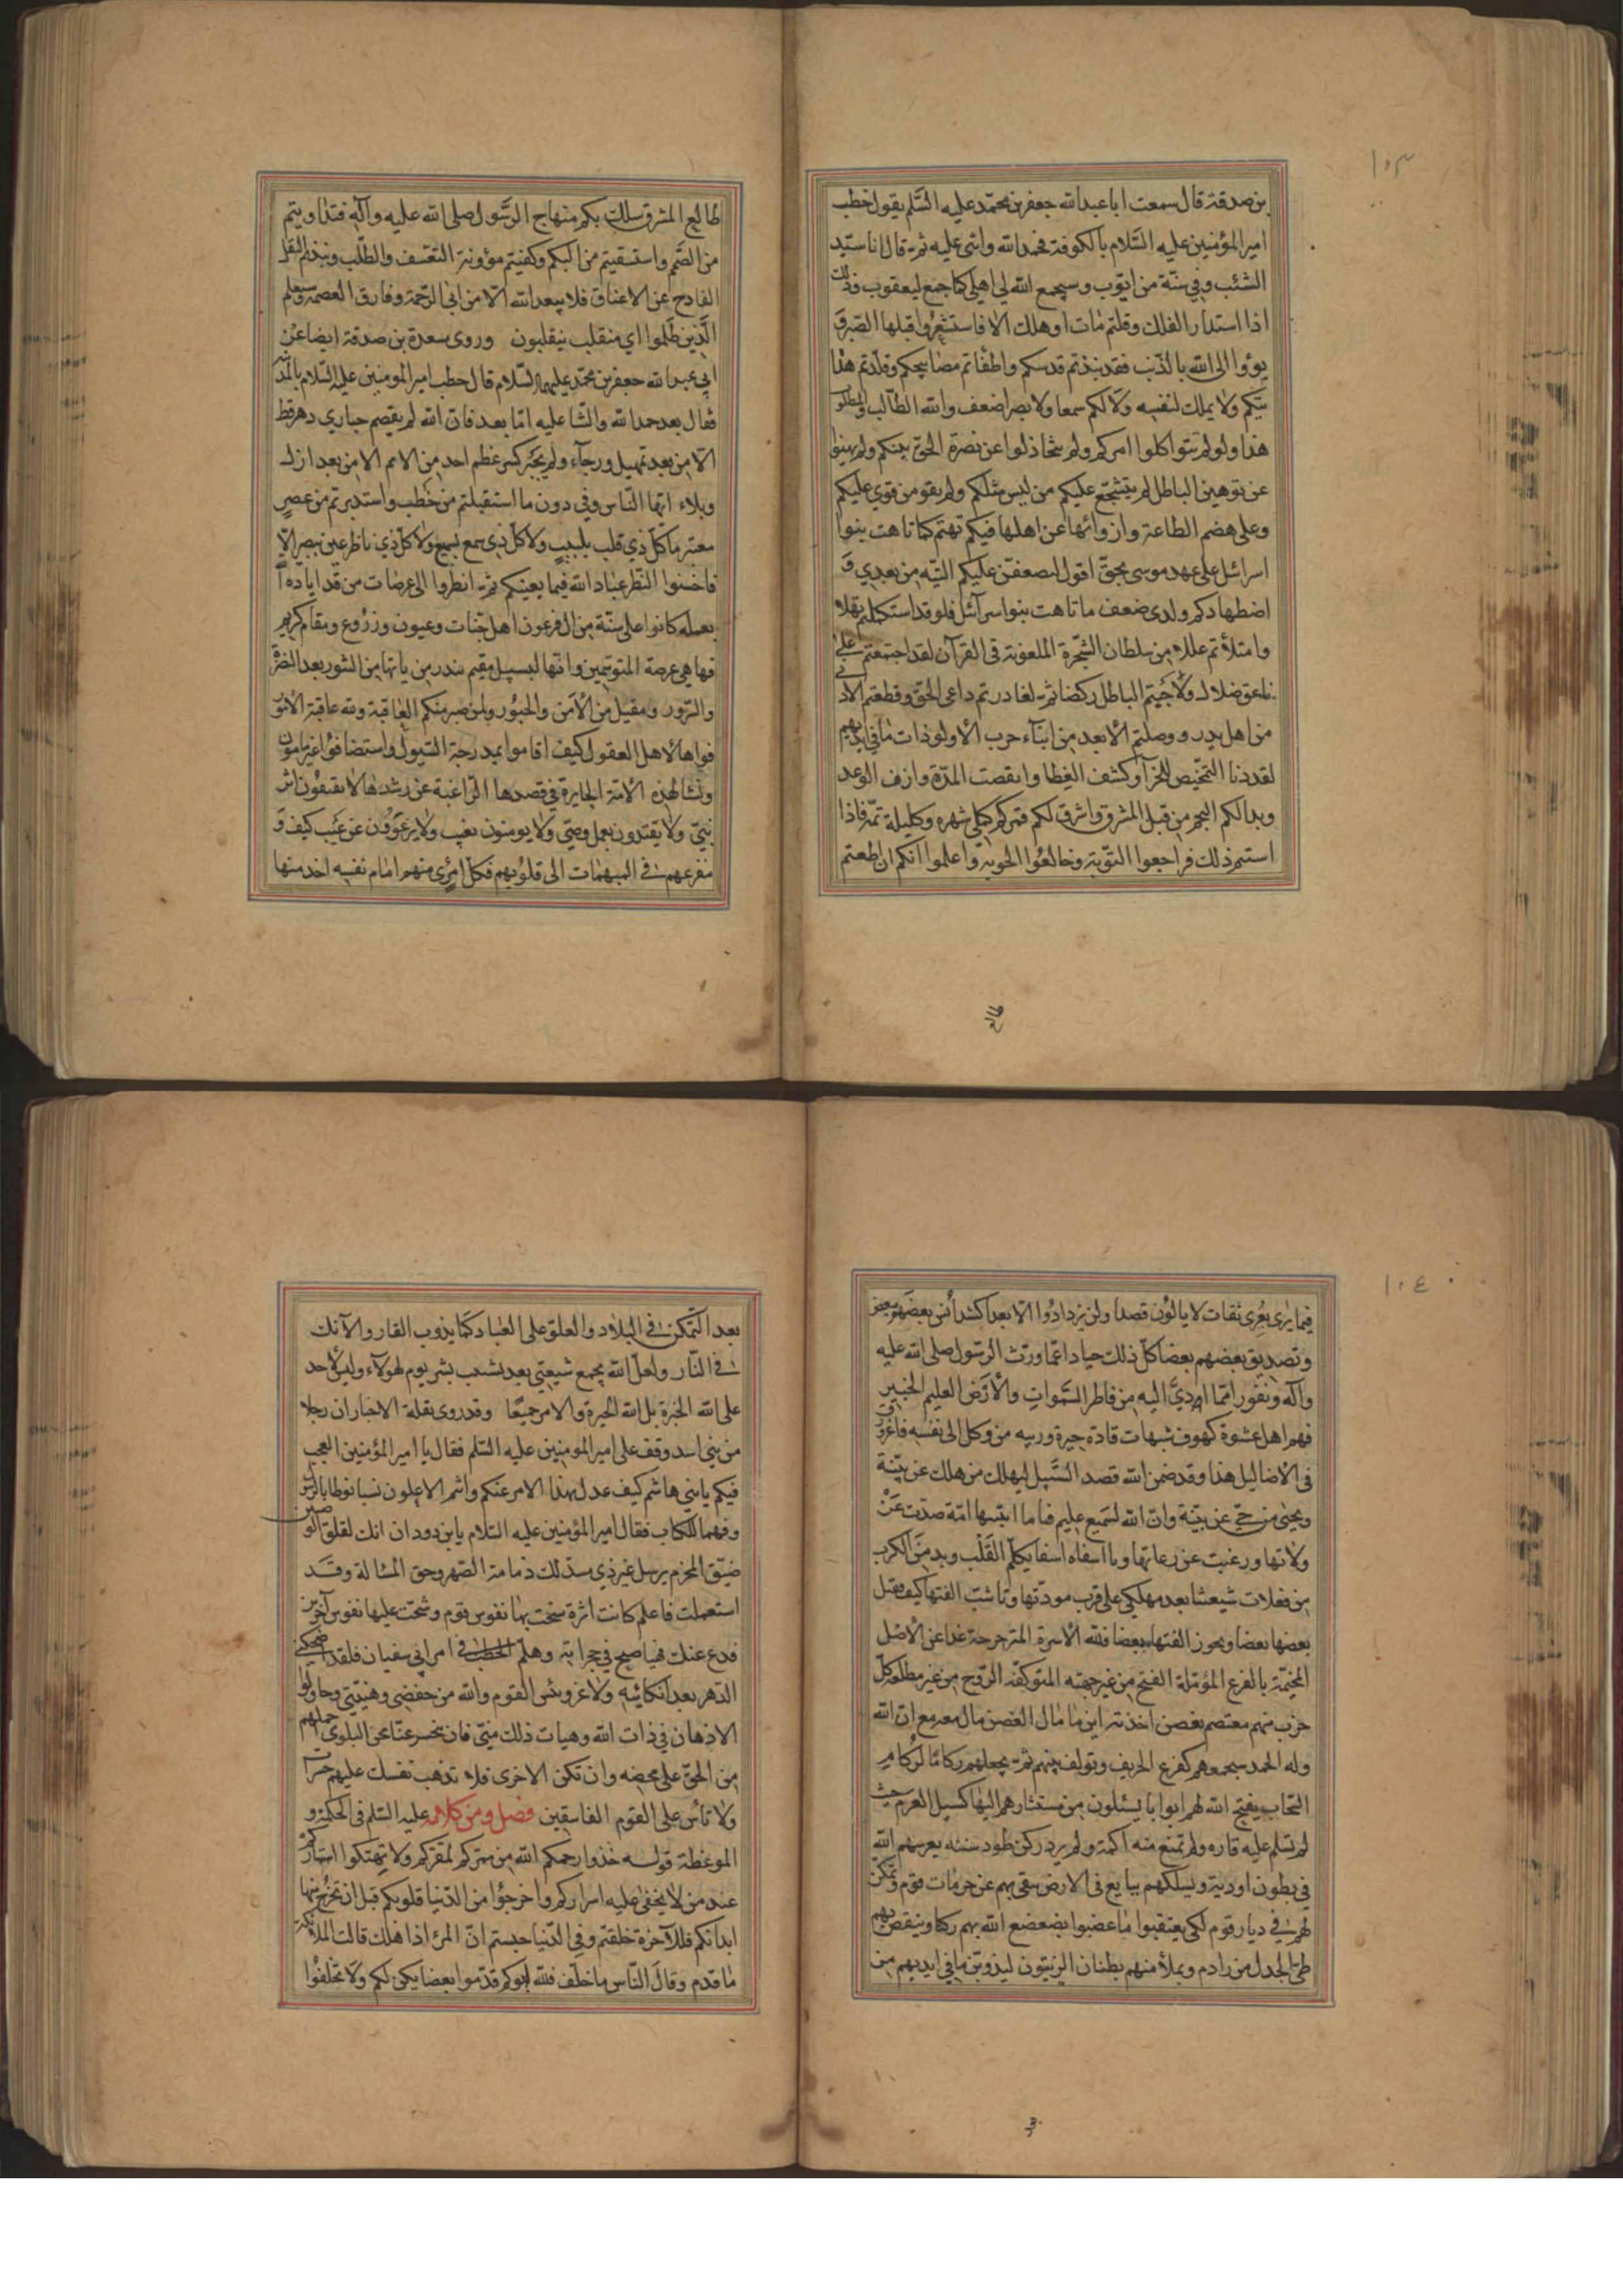 ١٠٣
بن صدقة قال سمعت ابا عبد الله جعفر بن محمد عليه السلم يقول خطب
امير المؤمنين عليه السلام بالكوفة فحمد الله واثنى عليه ثم قال انا سيد
الشئب وفي سنة من ايوب وسيجمع الله لي اهلي كما جمع ليعقوب وذلك
اذا استدار الفلك وقلتم مات او هلك الا فاستشعروا قبلها الصبر و
بؤوا الى الله بالذنب فقد نبذتم قدسكم واطفاتم مصابيحكم وقلدتم هذا
يتكم ولا يملك لنفسه ولا لكم سمعا ولا بصرا ضعف والله الطالب والمطلوب
هذا ولو لم تتواكلوا امركم ولم تتخاذلوا عن نصرة الحق بينكم ولم تهنوا
عن توهين الباطل لم يتشجع عليكم من ليس مثلكم ولم يقو من قوي عليكم
وعلى هضم الطاعة وازوائها عن اهلها فيكم تهتم كما تاهت بنوا
اسرائيل على عهد موسى بحق اقول ليضعفن عليكم التيه من بعدي و
اضطهادكم ولدى ضعف ما تاهت بنوا سرآئل فلو قد استكملتم نهلا
وامتلأتم عللا من سلطان الشجرة الملعونة في القرآن لقد اجتمعتم على
ناعق ضلال ولأجبتم الباطل ركضا ثم لغادرتم داعى الحق وقطعتم الادنى
من اهل بدر ووصلتم الأبعد من ابنآء حرب الأ ولو ذات ما في ايديهم
لقد دنا التمحيص للجزآ وكشف الغطا وانقضت المدة وازف الوعد
وبدا لكم النجم من قبل المشرق واشرق لكم قمركم كملى شهره وكليلة تمه فاذا
استتم ذلك فراجعوا التوبة وخالعوا الحوبة واعلموا انكم ان اطعتم
طالع
طالع المشرق سلك بكم منهاج الرسول صلى الله عليه وآله فتداويتم
من الصمم واستشقيتم من البكم وكفيتم مؤونة التعسف والطلب ونبذتم الثقل
الفادح عن الاعناق فلا يبعد الله الا من ابى الرحمة وفارق العصمة وسيعلم
الذين ظلموا اي منقلب ينقلبون وروى مسعدة بن صدقة ايضا عن
ابي عبد الله جعفر بن محمد عليهما السلام قال خطب امير المومنين عليه السلام بالمدينة
فقال بعد حمد الله والثنا عليه اما بعد فان الله لم يقصم جباري دهر قط
الا من بعد تمهيل ورجآء ولم يجبر كسر عظم احد من الامم الا من بعد ازل
وبلاء ايها الناس وفي دون ما استقبلتم من خطب واستدبرتم من عصر
معتبر ما كل ذي قلب بلبيب ولا كل ذي سمع بسميع ولا كل ذي ناظر عين ببصير الا
فاحسنوا النظر عباد الله فيما يعنيكم ثم انظروا الى عرصات من قد اباده الله
بعمله كانوا على سنة من ال فرعون اهل جنات وعيون وزروع ومقام كريم
فها هي عرصة المتوسمين وانها لبسبيل مقيم تنذر من ياتها من الثبور بعد النضرة
والسرور ومقيل من الأمن والحبور ولمن صبر منكم العاقبة ولله عاقبة الأمور
فواها لاهل العقول كيف اقاموا بمدرجة السيول واستضافوا غير مامون
ويسا لهذه الأمة الجايرة في قصدها الراغبة عن رشدها لا يقتفون اثر
نبي ولا يقتدون بعمل وصي ولا يومنون بغيب ولا يرعوون عن عيب كيف و
مفزعهم في المبهمات الى قلوبهم فكل امرئ منهم امام نفسه اخذ منها
١٠٤
فيما يرى بعرى ثقات لا يالون قصدا ولن يزدادوا الا بعدا لشد أنس بعضهم ببعض
وتصديق بعضهم بعضا كل ذلك حيادا عما ورث الرسول صلى الله عليه
وآله ونفورا مما ادى اليه من فاطر السموات والأرض العليم الخبير
فهم اهل عشوة كهوف شبهات قادة حيرة وريبه من وكل الى نفسه فاغرورق
في الأضاليل هذا وقد ضمن الله قصد السبيل ليهلك من هلك عن بينة
ويحيى من حي عن بينة وان الله لسميع عليم فيا ما اشبهها امة صدت عن
ولاتها ورغبت عن رعاتها ويا اسفاه اسفا يكلم القلب ويدمن الكرب
من فعلات شيعتنا بعد مهلكي على قرب مودتها وتاشب الفتها كيف يقتل
بعضها بعضا ويحوز الفتها ببعضا فلله الأسرة المتزحزحة غدا عن الأصل
المخيمة بالفرع المؤملة الفتح من غير جهته المتوكفة الروح من غير مطلعه كل
حزب منهم معتصم بغصن اخذ به اين ما مال الغصن مال معه مع ان الله
وله الحمد سيجمعهم كقزع الخريف ويولف بينهم ثم يجعلهم ركاما كركام
السحاب يفتح الله لهم ابوابا يسئلون من مستثارهم اليها كسيل العرم حيث
لم تسلم عليه قاره ولم تمنع منه اكمة ولم يرد ركن طود سننه يغرسهم الله
في بطون اودية ويسلكهم ينابيع في الارض ينفى بهم عن حرمات قوم ويمكن
لهم في ديار قوم لكي يعتقبوا ما غصبوا يضعضع الله بهم ركنا وينقض بهم
طي الجندل من ارم ويملأ منهم بطنان الزيتون ليذوبن ما في ايديهم من
بعد
بعد التمكن في البلاد والعلو على العباد كما يذوب القار والآنك
في النار ولعل الله يجمع شيعتي بعد تشعب بشر يوم لهولآء وليس لأحد
على الله الخيرة بل لله الخيرة والامر جميعا وقد روى نقلة الاخبار ان رجلا
من بني اسد وقف على امير المومنين عليه السلم فقال يا امير المؤمنين العجب
فيكم يا بني هاشم كيف عدل بهذا الامر عنكم وانتم الاعلون نسبا نوطا بالرسول
وفهما للكتاب فقال امير المؤمنين عليه السلام يا بن دودان انك لقلق الوضين
ضيق المخزم يرسل غير ذي سدلك ذمامة الصهر وحق المسالة وقد
استعملت فاعلم كانت اثرة سخت بها نفوس قوم وشحت عليها نفوس آخرين
فدع عنك نهبا صيح في حجراته وهلم الخطب في امر ابي سفيان فلقد اضحكني
الدهر بعد ابكائيه ولا غرو بئس القوم والله من خفضني وهينني وحاولوا
الاذهان في ذات الله وهيات ذلك مني فان تنحسر عنا محن البلوى احملهم
من الحق على محضه وان تكن الاخرى فلا تذهب نفسك عليهم حسرات
ولا تأس على القوم الفاسقين فصل ومن كلامه عليه السلم في الحكمة و
الموعظة قوله خذوا رحمكم الله من ممركم لمقركم ولا تهتكوا استاركم
عند من لا يخفى عليه اسراركم واخرجوا من الدنيا قلوبكم قبل ان تخرج منها
ابدانكم فللآخرة خلقتم وفي الدنيا حبستم ان المرء اذا هلك قالت الملائكة
ما قدم وقال الناس ما خلف فلله ابوكم قدموا بعضا يكن لكم ولا تخلفوا